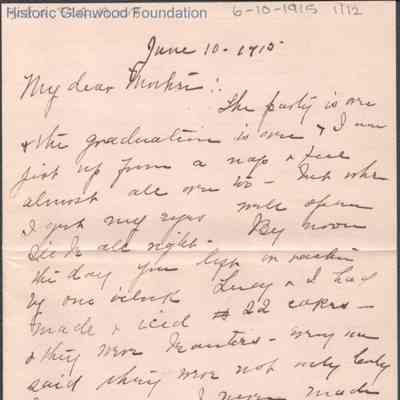 Historic Glenwood Foundation
6-10-1915 1/12
June 10-1915
My dear Mother:
The party is over
& the graduation is over & I am
just up from a nap & feel
almost all over too - Just when
I get my eyes well open
I'll be all right - By noon
the day you left
by one o'clock Lucy & I had
made & iced # 22 cakes -
& they were
said they were not only
I never made